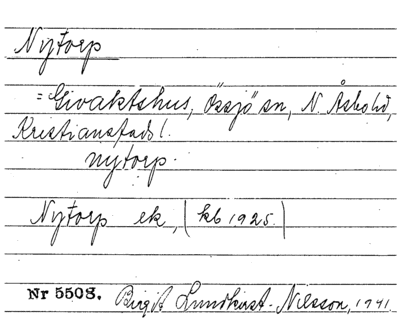 Nytorp
= Givaktshus, Össjö sn, N. Åsbo hd,
Kristianstads l.
nytorp.
Nytorp ek, (kb 1925.)
Nr 5508. Birgit Lundkvist-Nilsson, 1941.